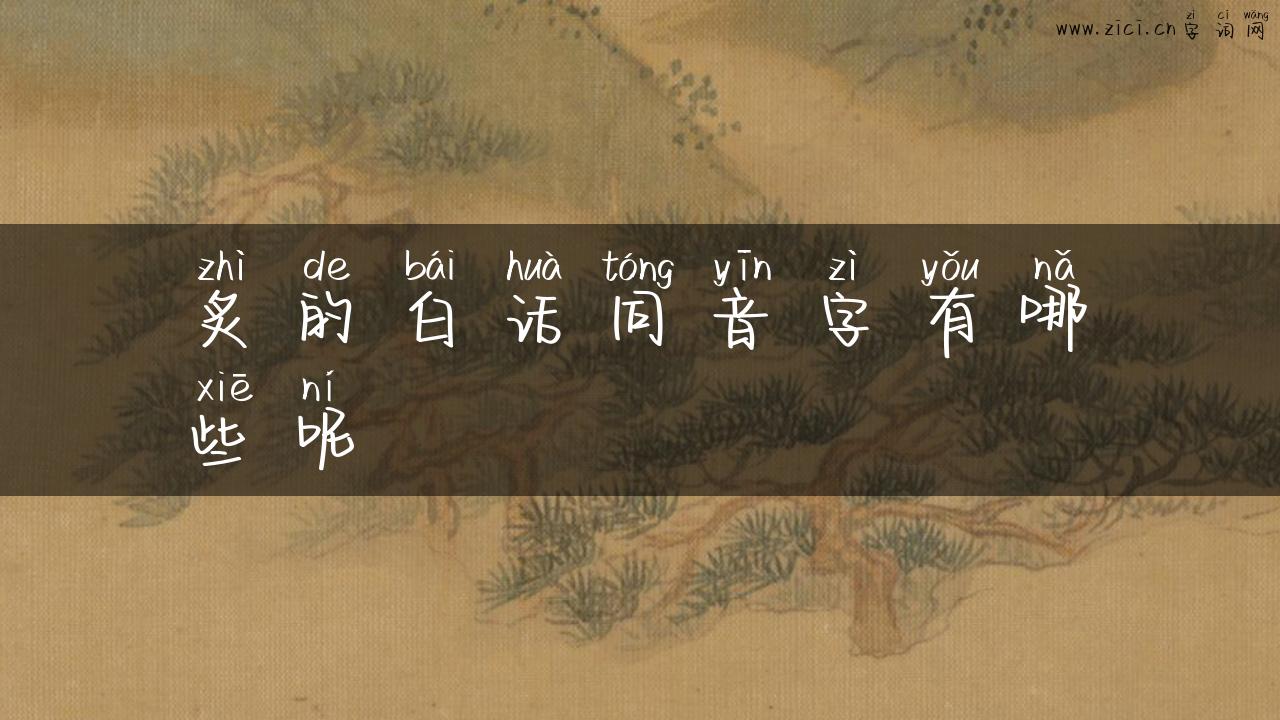 zì cí wǎng
www.zīcī.cn 字 词 网
zhì de bái huà tóng yīn zì yǒu nǎ
炙 的 白 话 同 音 字 有 哪
xiē ní
些 呢